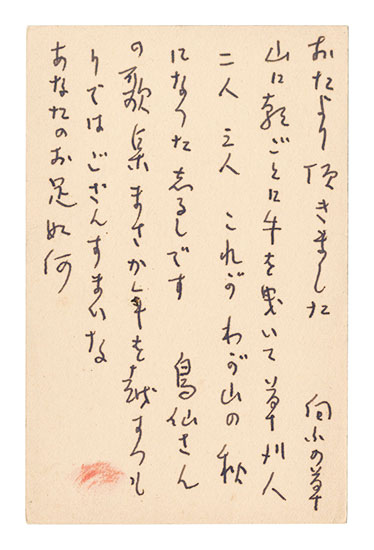 おたより頂きました　向ふの草
山に朝ごとに牛を曳いて草刈人
二人　三人　これがわが山の秋
になつた志るしです　鳥仙さん
の歌集まさか年を越すつも
りではござんすまいな
あなたのお足如何